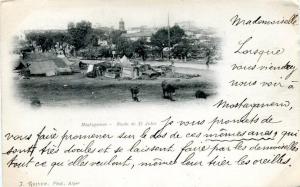 Mademoiselle
Lorsque
vous viendrez
nous voir à
Mostaganem,
Mostaganem - Route de
je vous promets de
vous faire promener sur le dos de ces mêmes ânes, qui
sont très doux et se laissent faire par les demoiselles
tout ce qu'elles veulent, même leur tirer les oreilles.
J. Geiser, Phot., Alger